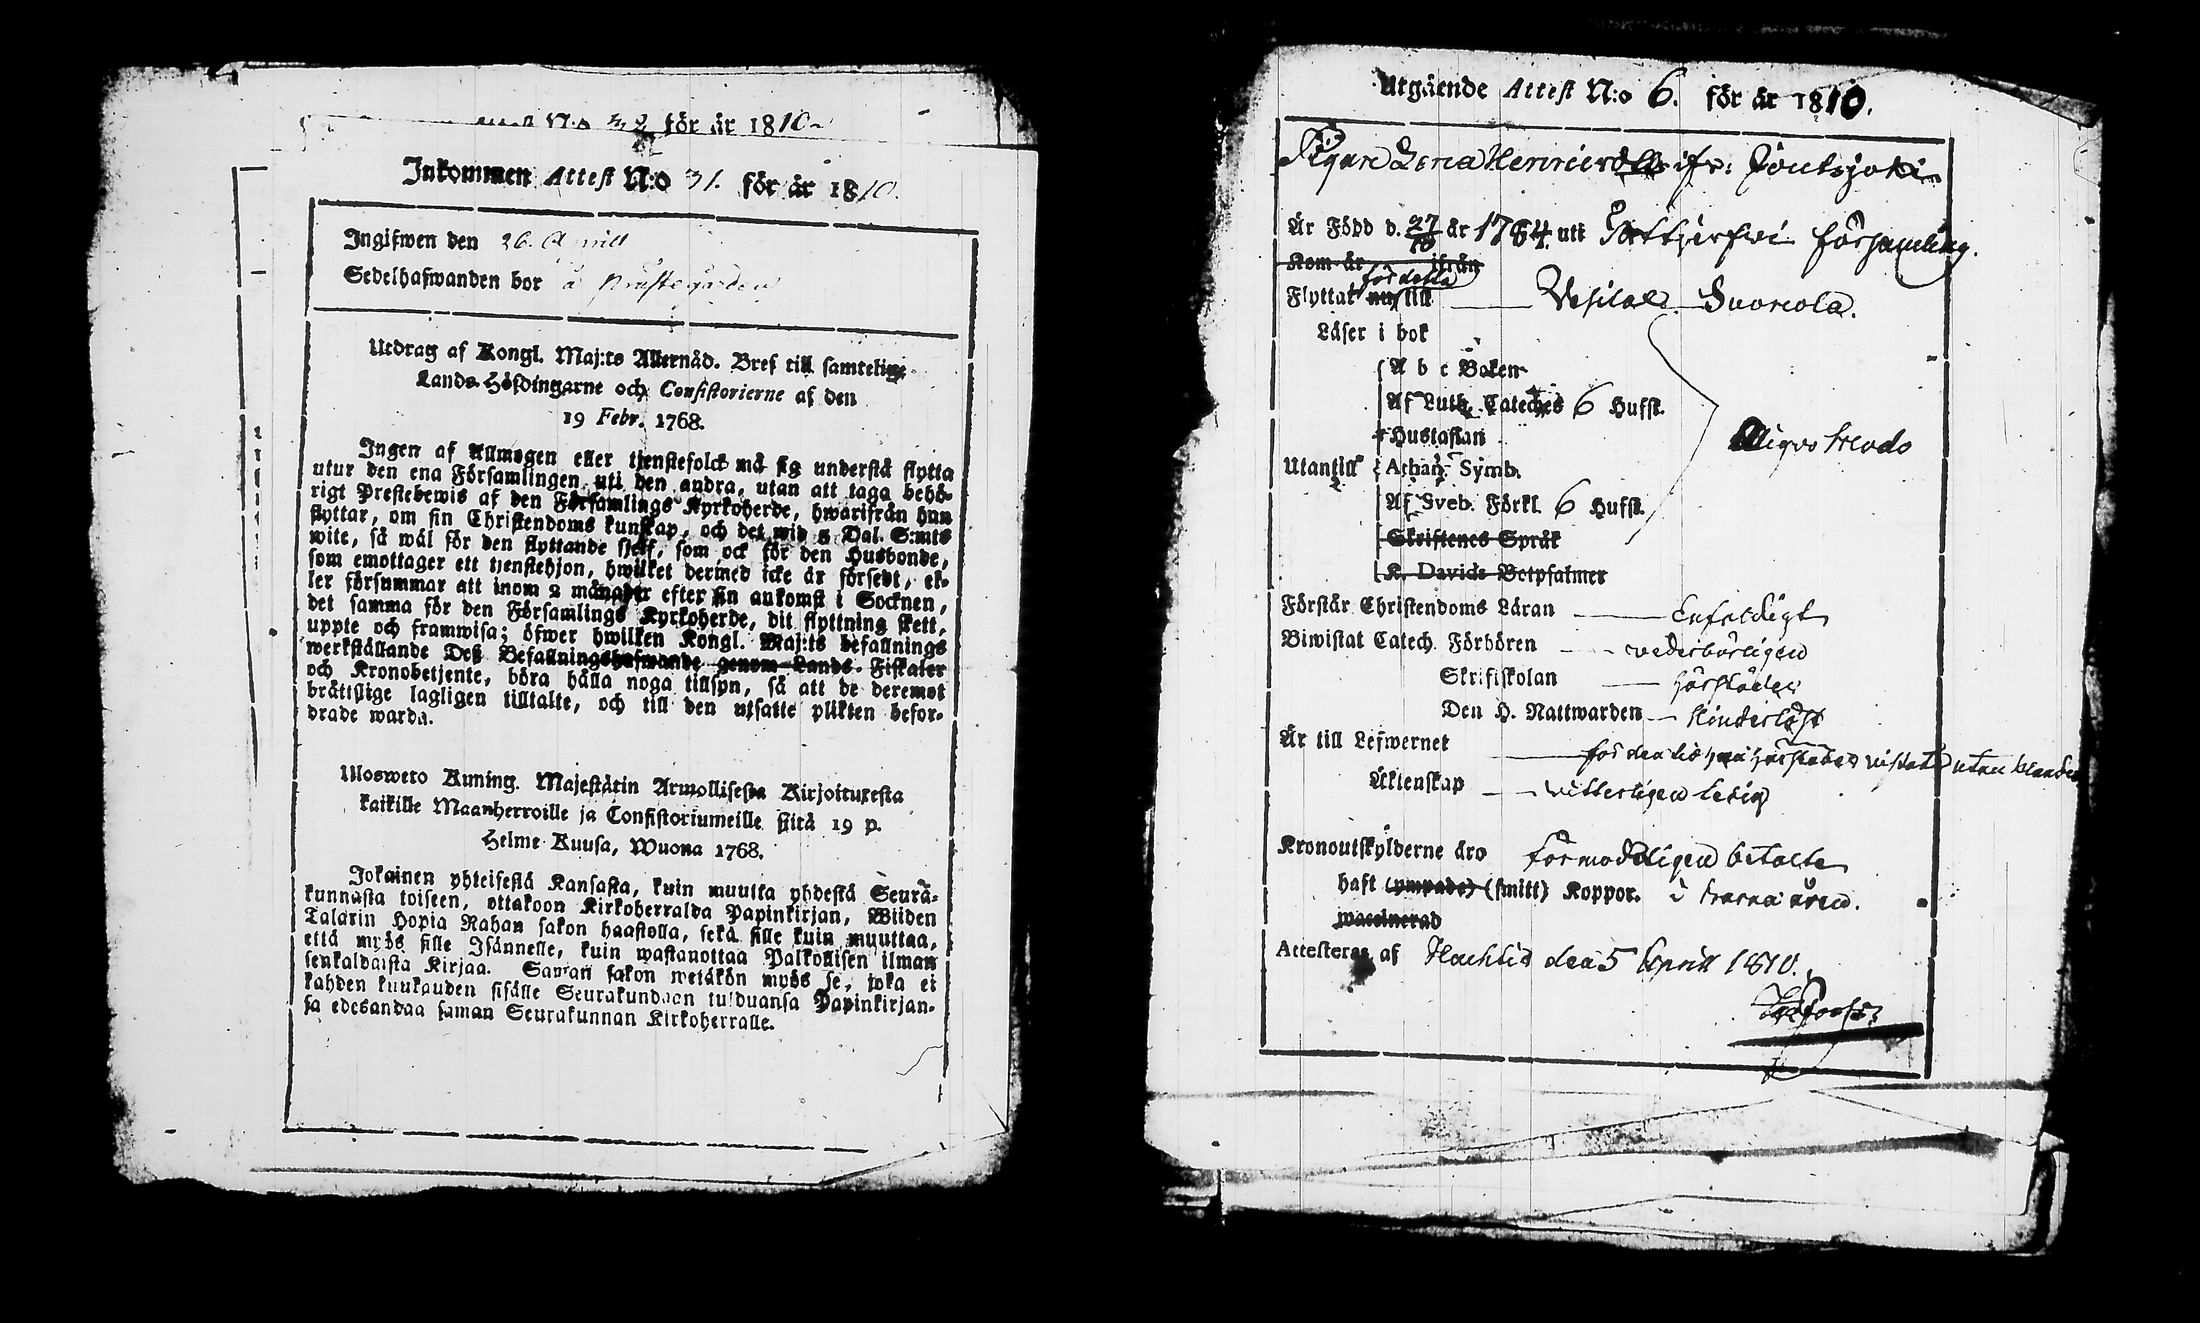 N:o 32 för år 1810
Inkommen Attest N:o 31. för år 1810.
Ingifwen den 26. April
Sedelhafwanden bor å prästegården
Utdrag af Kongl. Maj:ts Allernåd. Bref till samtelige
Lands-Höfdingarne och Consistorierne af den
19 Febr. 1768.
Ingen af Allmogen eller tjenstefolck må sig understå flytta
utur den ena Församlingen uti den andra, utan att taga behö-
rigt Prestebewis af den Församlings Kyrkoherde, hwarifrån han
flyttar, om sin Christendoms kunskap, och det wid 5 Dal. S:mts
wite, så wäl för den flyttande sjelf, som ock för den Husbonde,
som emottager ett tjenstehjon, hwilket dermed icke är försedt, el-
ler försummar att inom 2 månader efter sin ankomst i Socknen,
det samma för den Församlings Kyrkoherde, dit flyttning skett,
uppte och framwisa; öfwer hwilken Kongl. Maj:ts befallnings
werkställande Deß Befallningshafwande genom Lands-Fiskaler
och Kronobetjente, böra hålla noga tillsyn, så att de deremot
brättslige lagligen tilltalte, och till den utsatte plikten befor-
drade warda.
Ulosweto Kuning. Majestätin Armollisesta Kirjoituxesta
kaikille Maanherroille ja Consistoriumeille siitä 19 p.
Helme-Kuusa, Wuona 1768.
Jokainen yhteisestä Kansasta, kuin muutta yhdestä Seurä-
kunnasta toiseen, ottakoon Kirkoherralda Papinkirjan, Wiiden
Talarin Hopia Rahan sakon haastolla, sekä sille kuin muuttaa,
että myös sille Isännelle, kuin wastanottaa Palkollisen ilman
senkaldaista Kirjaa. Saman sakon wetäkön myös se, joka ei
kahden kuukauden sisälle Seurakundaan tulduansa Papinkirjan-
sa edesandaa saman Seurakunnan Kirkoherralle.
Utgående Attest N:o 6. för år 1810.
Pigan Lena Henricsdr ifr:
Är Född d. 27/10 år 1784 uti församling.
Kom år ifrån
för detta
Flyttat nu till Vesilax Suoniola.
Läser i bok
A b c Boken
Af Luth. Cateches 6 Hufst.
Hustaflan
Utantill Athan. Symb.
Af Sveb. Förkl. 6 Hufst.
Skriftenes Språk
K. Davids Botpsalmer
Aliqvo modo
Förstår Christendoms Läran enfaldigt
Biwistat Catech. Förhören wederbörligen
Skriftskolan härstädes
Den H. Nattwarden hinderlöst
Är till Lefwernet för den tid hon härstädes vistats utan klander
Äktenskap witterligen ledig
Kronoutskylderne äro förmodeligen betalte
haft (ympade) (smitt) Koppor. i barna åren.
waccinerad
Attesteras af Hachtis den 5 April 1810.